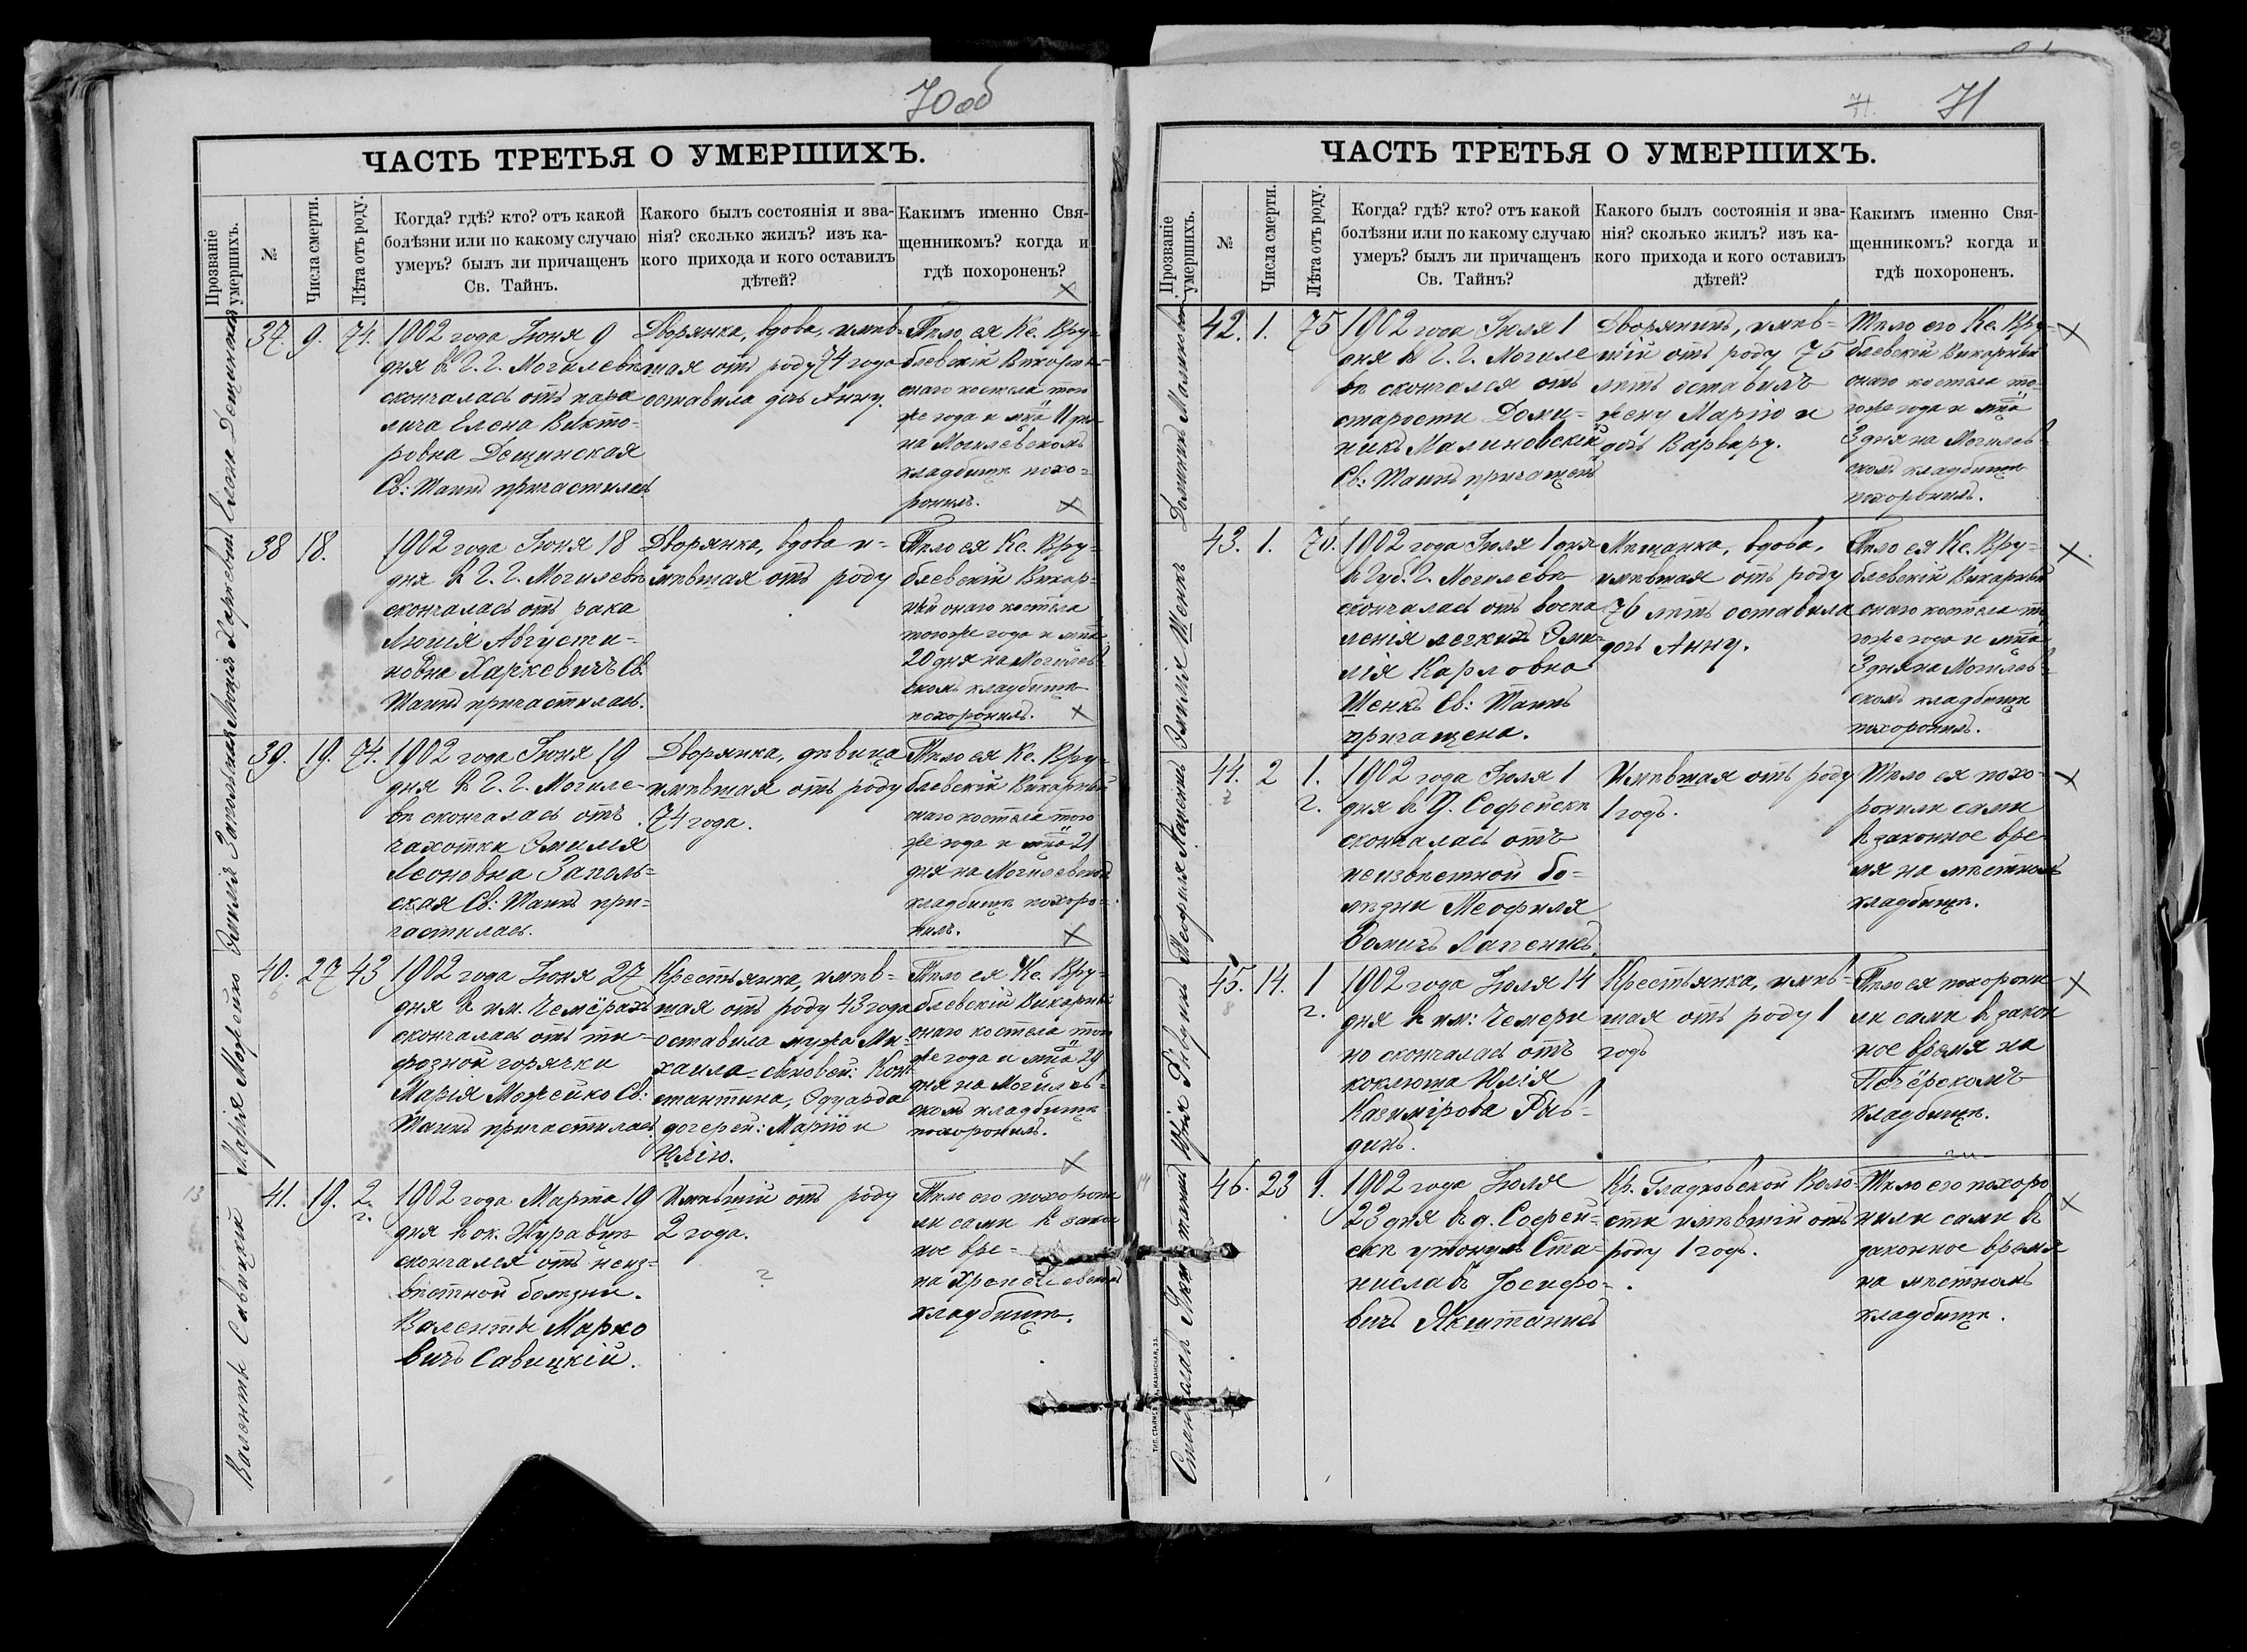 70 об
ЧАСТЬ ТРЕТЬЯ О УМЕРШИХЪ.
Прозваніе умершихъ.
№
Числа смерти.
Лѣта отъ роду.
Когда? гдѣ? кто? отъ какой
болѣзни или по какому случаю
умеръ? былъ ли причащенъ
Св. Тайнъ.
Какого былъ состоянія и зва-
нія? сколько жилъ? изъ ка-
кого прихода и кого оставилъ
дѣтей?
Какимъ именно Свя-
щенникомъ? когда и
гдѣ похороненъ?
Елена Дещинская
37. 9. 74.
1902 года Іюня 9
дня въ Г. Г. Могилевѣ
скончалась отъ пара
лича Елена Викто-
ровна Дещинская
Св: Таинъ причастилась
Дворянка, вдова, имѣв-
шая отъ роду 74 года
оставила дочь Анну.
Тѣло ея Кс. Вру-
блевскій Викарный
онаго костела того
же года и мца 11 дня
на Могилевскомъ
кладбищѣ похо-
ронилъ.
Люція Харкевичъ
38 18.
1902 года Іюня 18
дня въ Г. Г. Могилевѣ
скончалась отъ рака
Люція Августи-
новна Харкевичъ Св.
Таинъ причастилась.
Дворянка, вдова и-
мѣвшая отъ роду
Тѣло ея Кс. Вру-
блевскій Викар-
ный онаго костела
тогоже года и мца
20 дня на Могилев-
скомъ кладбищѣ
похоронилъ.
Эмилія Запольская
39. 19. 74.
1902 года Іюня 19
дня въ Г. Г. Могиле-
вѣ скончалась отъ
чахотки Эмилія
Леоновна Заполь-
ская Св: Таинъ при-
частилась.
Дворянка, дѣвица
имѣвшая отъ роду
74 года.
Тѣло ея Кс. Вру-
блевскій Викарный
онаго костела того
же года и мца 21
дня на Могилевскомъ
кладбищѣ похоро-
нилъ.
Марія Можейко
40. 27 43
1902 года Іюня 27
дня въ им. Чемёрахъ
скончалась отъ ти-
фозной горячки
Марія Можейко Св:
Таинъ причастилась.
Крестьянка, имѣв-
шая отъ роду 43 года
оставила мужа Ми-
хаила сыновей: Конс
тантина, Эдуарда
дочерей: Марію и
Юлію.
Тѣло ея Кс. Вру-
блевскій Викарный
онаго костела того
же года и мца 29
дня на Могилев-
скомъ кладбищѣ
похоронилъ.
Валентъ Савицкій
41. 19. 2 г.
1902 года Марта 19
дня въ ок. Журавцѣ
скончался отъ неиз-
вѣстной болѣзни.
Валентъ Марко
вичъ Савицкій.
Имѣвшій отъ роду
2 года.
Тѣло его похорони
ли сами въ закон
ное вре-
на
кладбищѣ.
71. 71
ЧАСТЬ ТРЕТЬЯ О УМЕРШИХЪ.
Прозваніе умершихъ.
№
Числа смерти.
Лѣта отъ роду.
Когда? гдѣ? кто? отъ какой
болѣзни или по какому случаю
умеръ? былъ ли причащенъ
Св. Тайнъ?
Какого былъ состоянія и зва-
нія? сколько жилъ? изъ ка-
кого прихода и кого оставилъ
дѣтей?
Какимъ именно Свя-
щенникомъ? когда и
гдѣ похороненъ.
Доминикъ Малиновскій
42. 1. 75
1902 года Іюля 1
дня въ Г. Г. Могиле
вѣ скончался отъ
старости Доми-
никъ Малиновскій
Св: Таинъ причащенъ
Дворянинъ, имѣв-
шій отъ роду 75
лѣтъ оставилъ
жену Марію и
дочь Варвару.
Тѣло его Кс. Вру-
блевскій Викарный
онаго костела то-
гоже года и мца
3 дня на Могилев-
скомъ кладбищѣ
похоронилъ.
Эмилія Шенкъ
43. 1. 76.
1902 года Іюля 1 дня
въ Губ. Г. Могилевѣ
скончалась отъ воспа
ленія легкихъ Эми-
лія Карловна
Шенкъ Св: Таинъ
причащена.
Мѣщанка, вдова,
имѣвшая отъ роду
76 лѣтъ оставила
дочь Анну.
Тѣло ея Кс. Вру-
блевскій Викарный
онаго костела то
гоже года и мца
3 дня на Могилев-
скомъ кладбищѣ
похоронилъ.
Теофиля Лапенисъ
44. 2 1. г.
1902 года Іюля 1
дня въ д. Софейскѣ
скончалась отъ
неизвѣстной бо-
лѣзни Теофиля
Лапенисъ.
Имѣвшая отъ роду
1 годъ.
Тѣло ея похо-
ронили сами
въ законное вре-
мя на мѣстномъ
кладбищѣ.
Юлія Рывдинъ
45. 14. 1 г.
1902 года Іюля 14
дня въ им: Чемери
но скончалась отъ
коклюша Юлія
Казимірова Рыв-
динъ.
Крестьянка, имѣв-
шая отъ роду 1
годъ
Тѣло ея похорони
ли сами въ закон
ное время на
Печёрскомъ
кладбищѣ.
Станиславъ Якштанисъ
46. 23 1.
1902 года Іюля
23 дня въ д. Софей-
скѣ утонулъ Ста-
ниславъ Іосифо-
вичъ Якштанисъ
Кр. Гладковской Воло-
сти имѣвшій отъ
роду 1 годъ.
Тѣло его похоро
нили сами въ
законное время
на мѣстномъ
кладбищѣ.